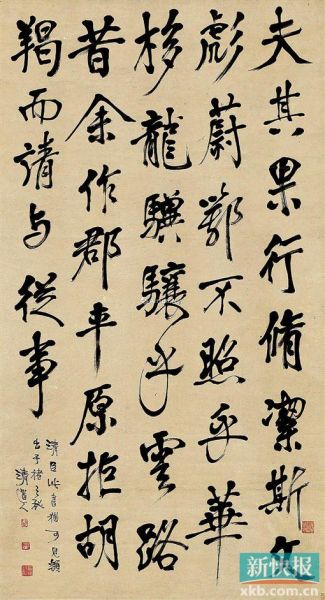 夫其果行脩潔斯文
彪蔚鄂不照乎華
栘龍驥驤乎雲路
昔余作郡平原拒胡
羯而請与從事
清臣此書猶可見顏
出于褚
清道人
新快报
xkb.com.cn